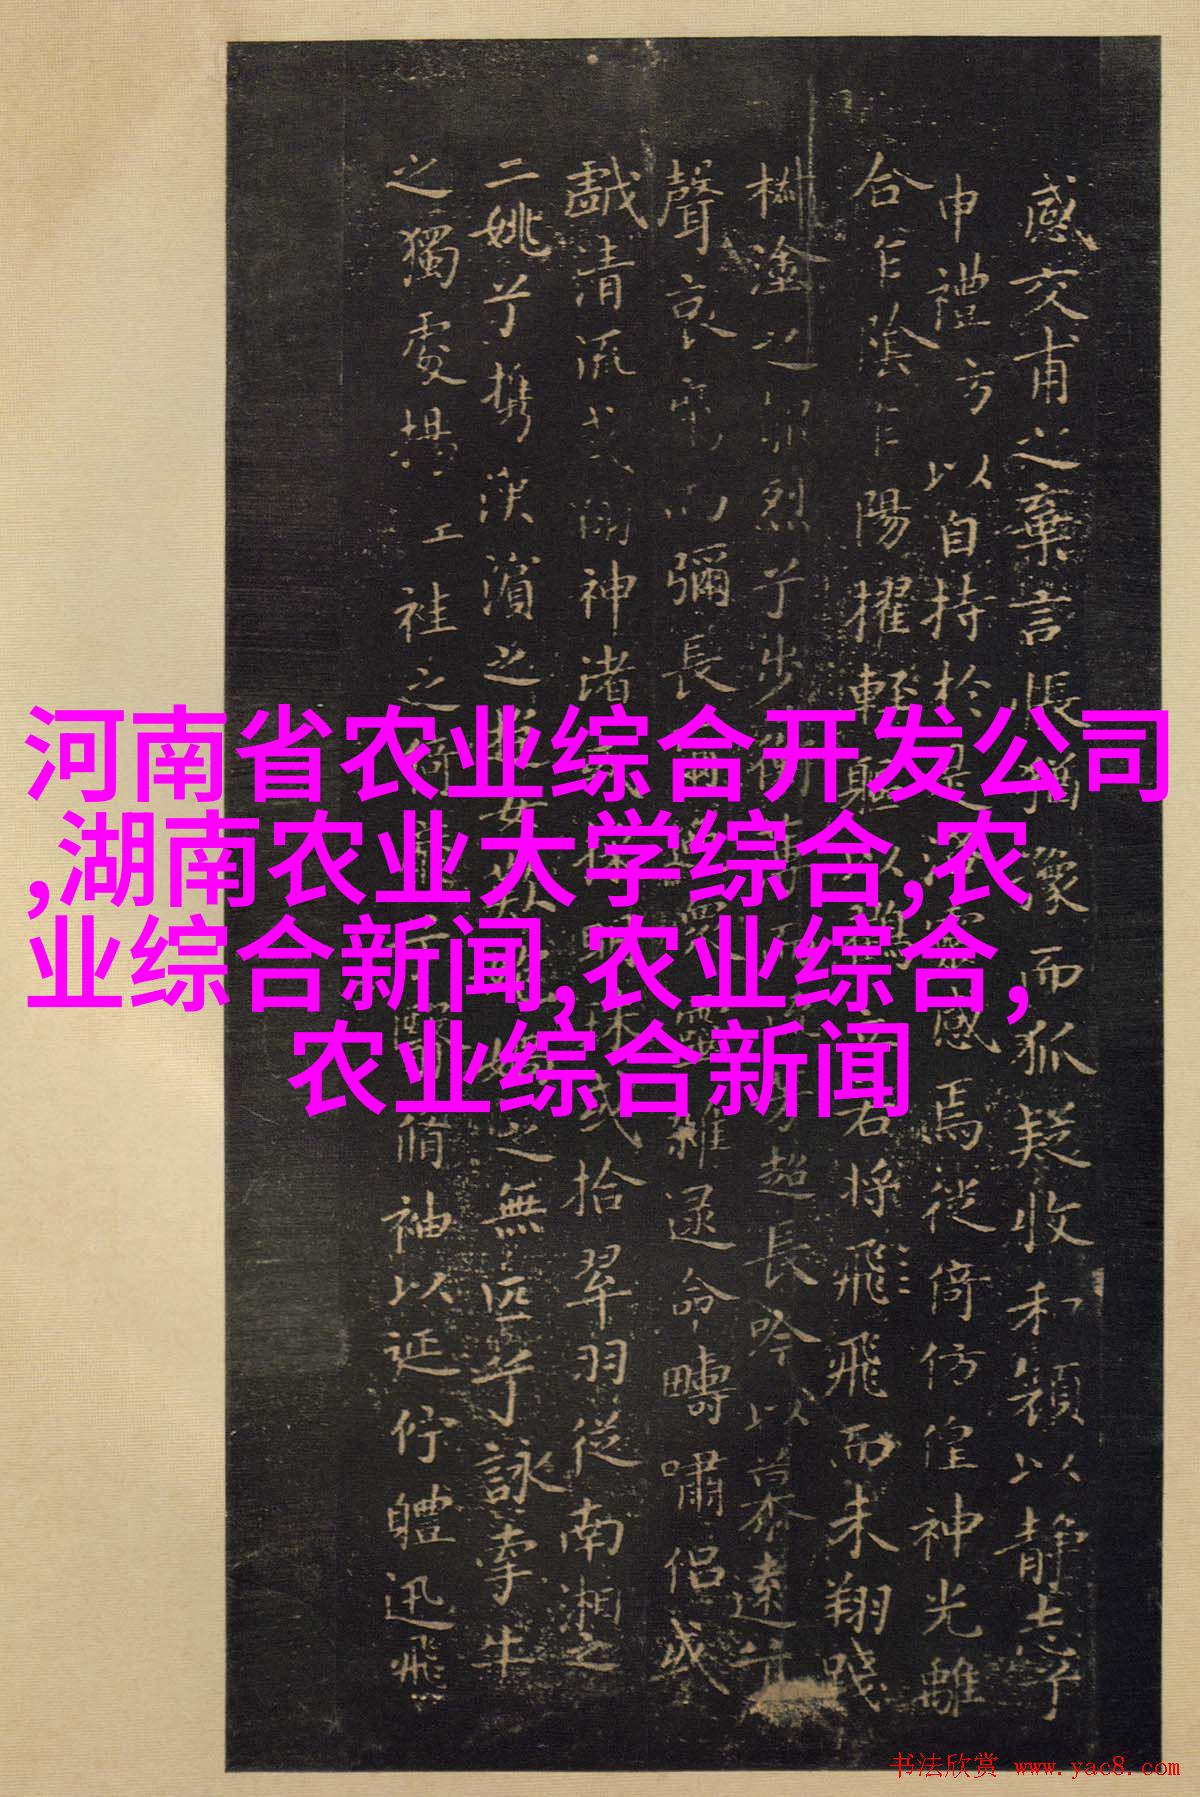 河南省农业综合开发公司
,湖南农业大学综合,农
业综合新闻,农业综合,
农业综合新闻
感交甫之棄言悵猶豫而狐疑收和顏以静志兮
申禮方以自持於是洛靈感焉徙倚仿偟神光離
合乍陰乍陽擢輕軀以鶴立若將飛飛而未翔踐
塗之烈兮步芳超長吟以慕遠兮
聲哀而彌長靈雜遝命疇嘯侶或
戲清流或神渚明珠或拾翠羽從南湘之
二姚兮攜漢濱之女之無匹兮詠牽牛
之獨處揚袿之脩袖以延佇體迅飛
书法欣赏 www.yac8.com